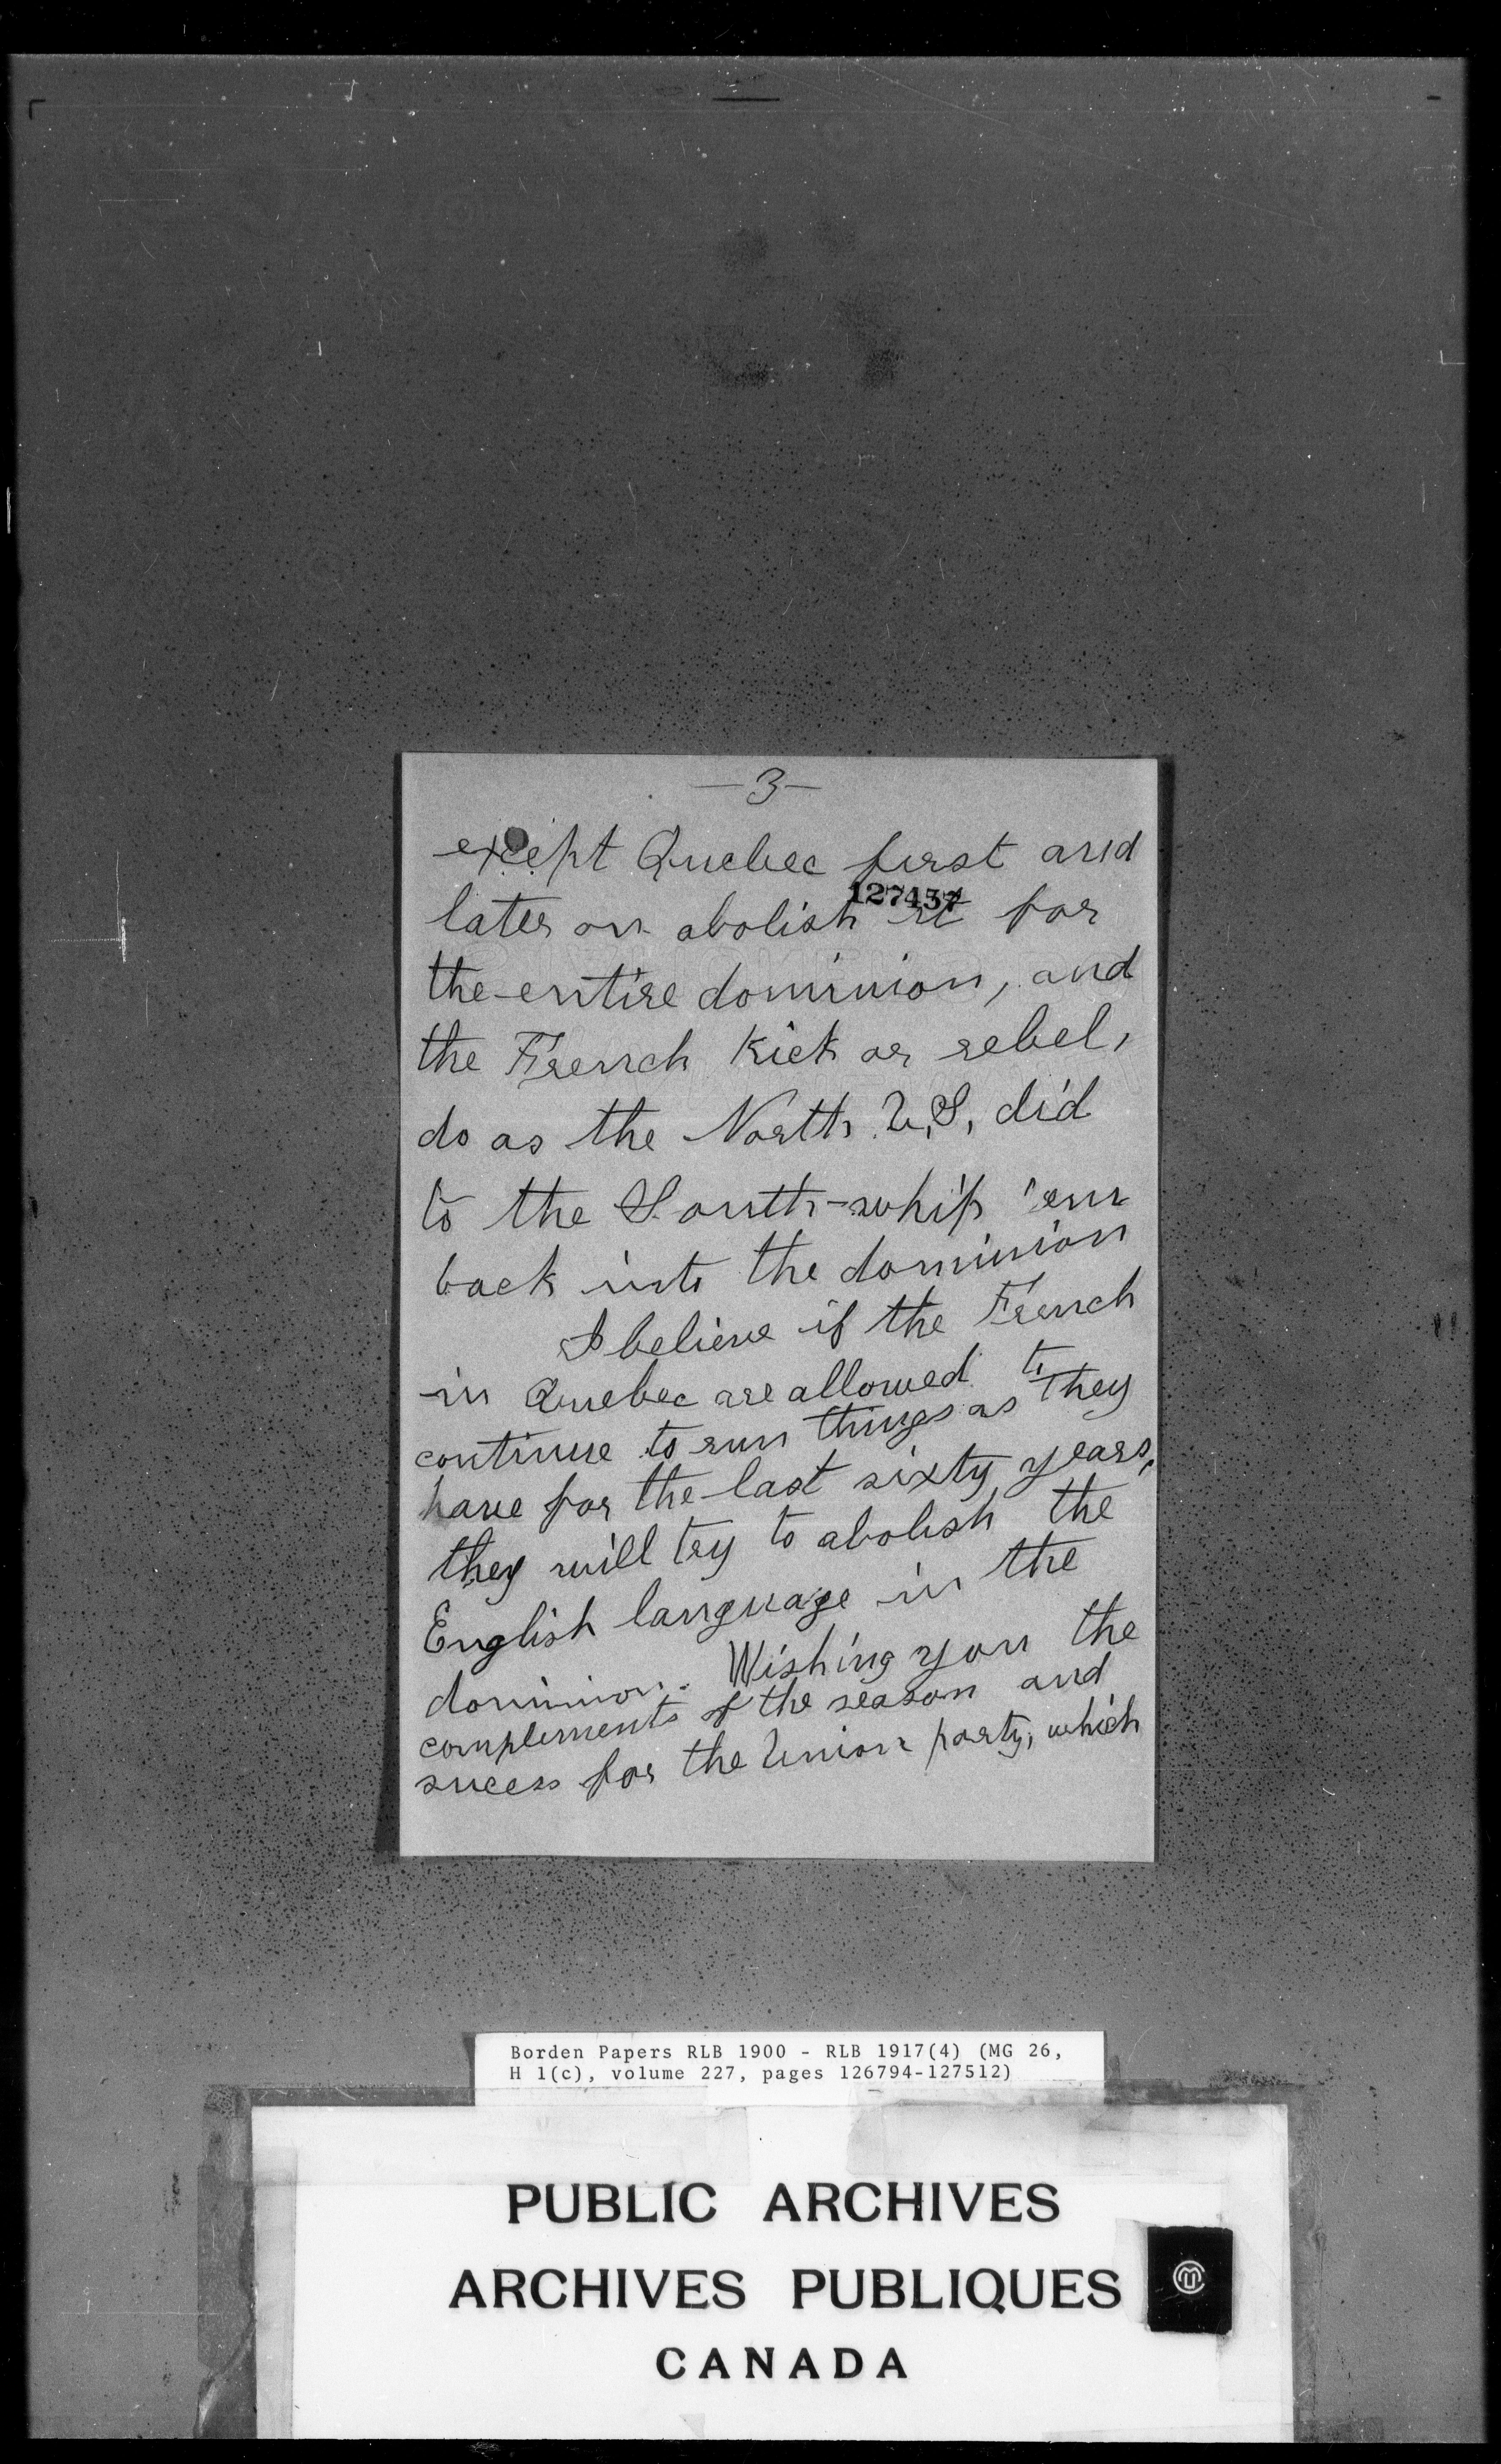 -3-
except Quebec first and
127457
later on abolish it for
the entire dominion, and
the French kick or rebel,
do as the North U.S. did
to the South-whip 'em
back into the dominion
I believe if the French
in Quebec are allowed to
continue to run things as they
have for the last sixty years,
they will try to abolish the
English language in the
dominion. Wishing you the
complements of the season and
sucess for the Union party, which
Borden Papers RLB 1900 - RLB 1917(4) (MG 26,
H 1(c), volume 227, pages 126794-127512)
PUBLIC ARCHIVES
ARCHIVES PUBLIQUES
CANADA